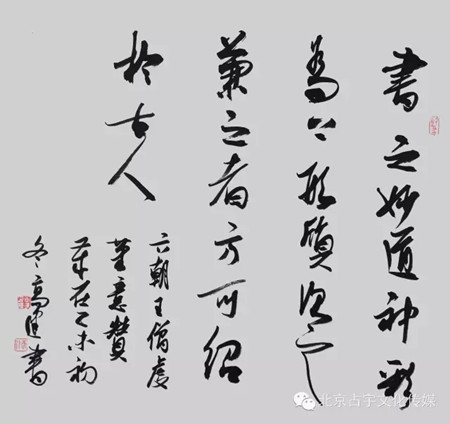 書之妙道神彩
為上形質次之
兼之者方可紹
於古人
六朝王僧虔
筆意贊
歲在乙未初
冬高書
北京古宇文化传媒